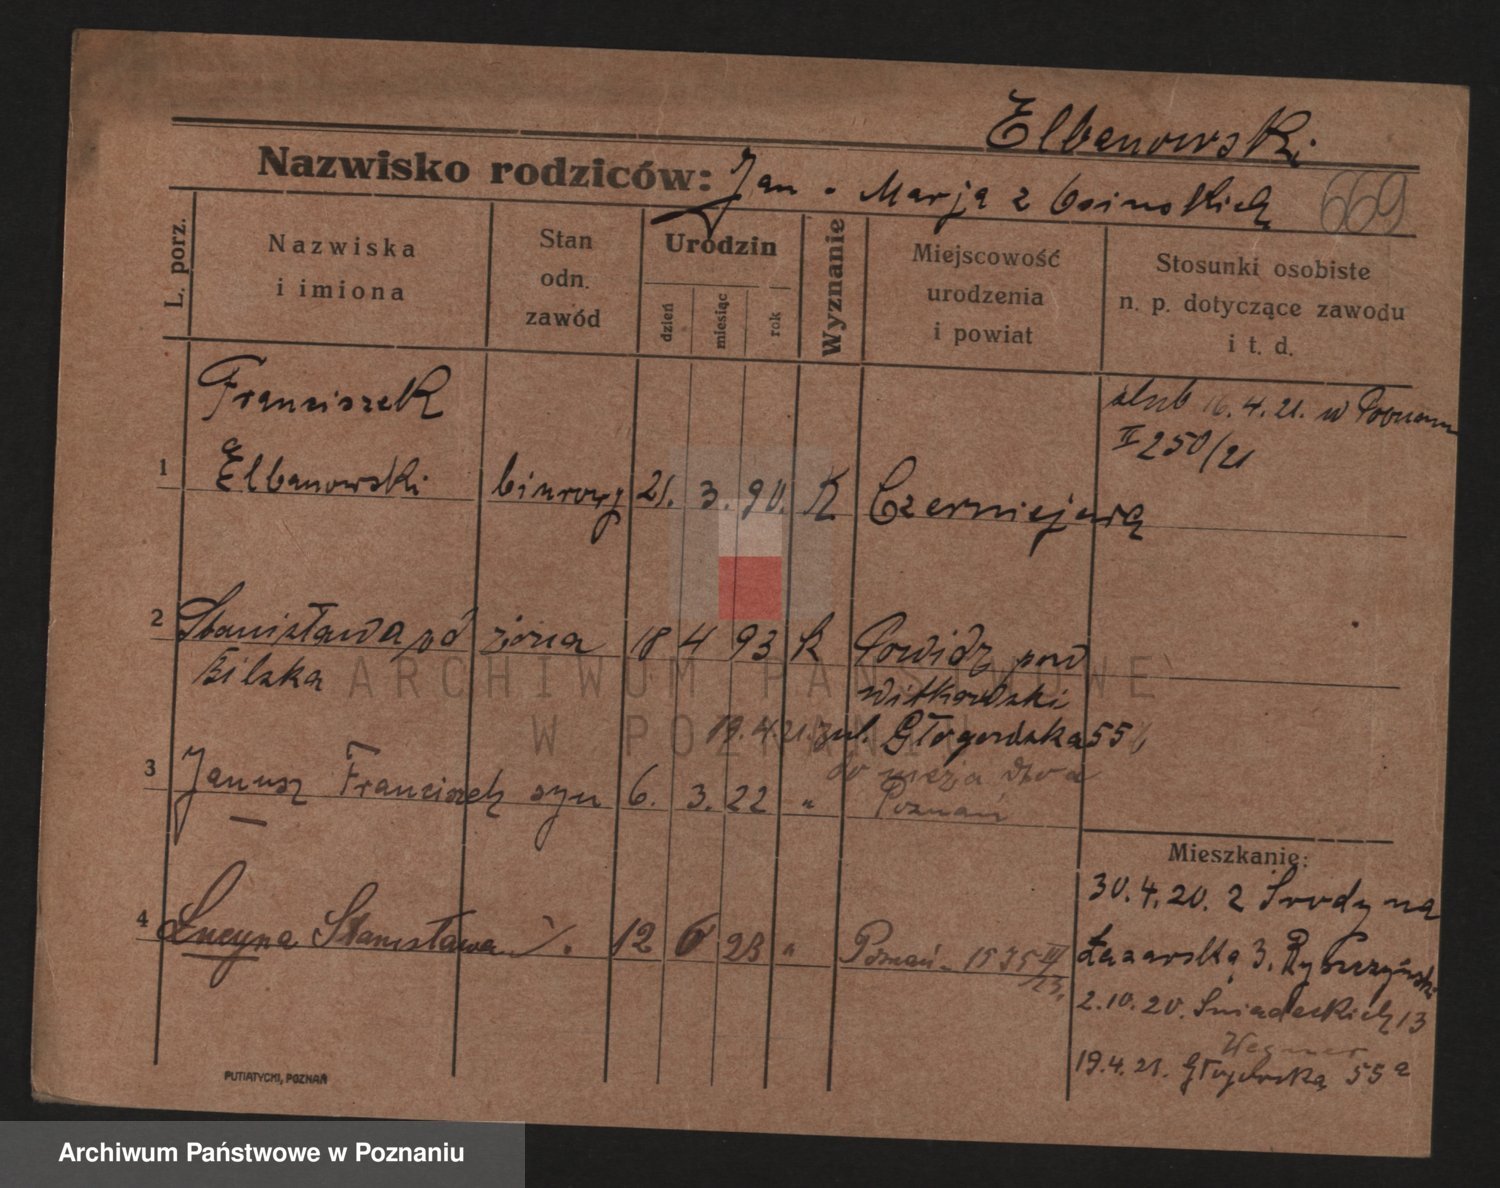 Elbanowski
Nazwisko rodziców: Jan - Marja z Osinskich 669
L. porz.
Nazwiska
i imiona
Stan
odn.
zawód
Urodzin
dzień
miesiąc
rok
Wyznanie
Miejscowość
urodzenia
i powiat
Stosunki osobiste
n. p. dotyczące zawodu
i t. d.
Franciszek
ślub 16.4.21. w Poznaniu
II 250/21
1 Elbanowski biurowy 21. 3. 90. K Czerniejewo
2 Stanisława żona 18 4 93 k Powidz pow
Bilska witkowski
19.4.21. ul. Głogowska 55
do męża
3 Janusz Franciszek syn 6. 3. 22 " Poznań
Mieszkanie:
30.4.20. z Środy na
4 Lucyna Stanisława 12 6 23 " Poznań
Łazarską 3.
2.10.20. Śniadeckich 13
Wegner
19.4.21. Głogowską 55a
PUTIATYCKI, POZNAŃ
ARCHIWUM PAŃSTWOWE
W POZNANIU
Archiwum Państwowe w Poznaniu